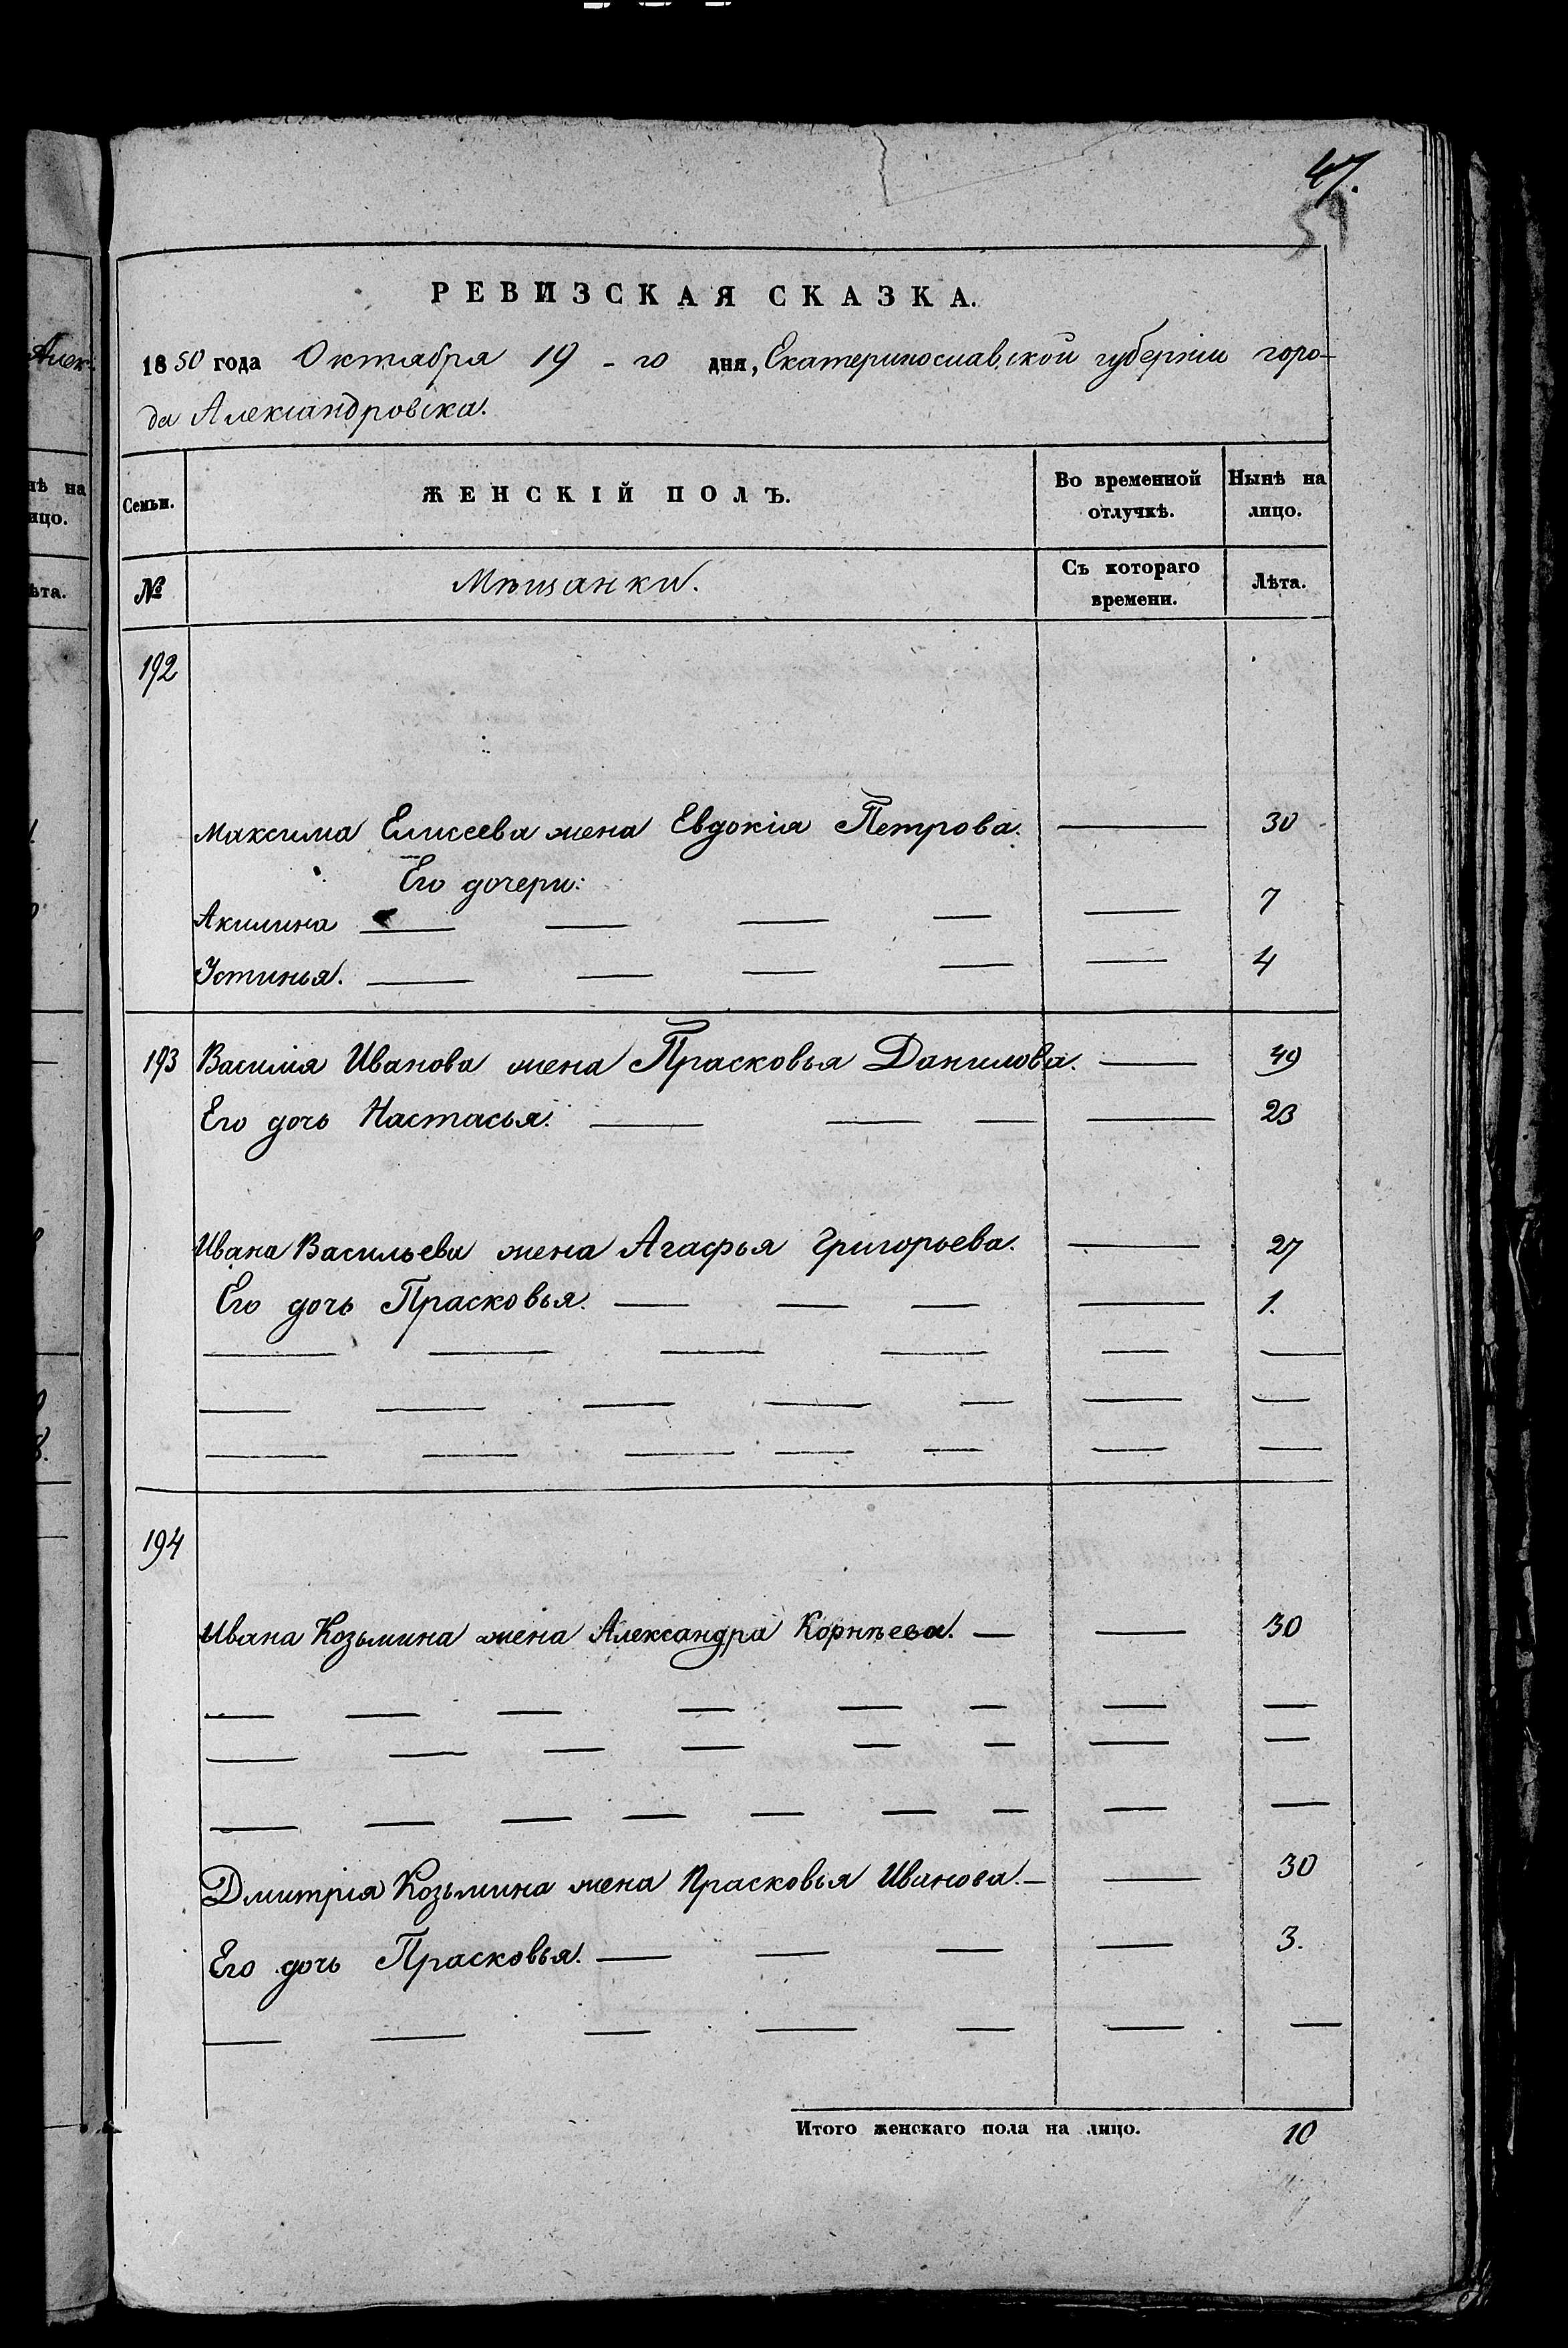 47.
59
РЕВИЗСКАЯ СКАЗКА.
1850 года Октября 19-го дня, Екатеринославской губерніи горо-
да Александровска.
Семьи. ЖЕНСКІЙ ПОЛЪ. Во временной отлучкѣ. Нынѣ на лицо.
№ Мѣщанки. Съ котораго времени. Лѣта.
192
Максима Елисеева жена Евдокія Петрова. — 30
Его дочери:
Акилина — — — — — 7
Устинья. — — — — — 4
193 Василія Иванова жена Прасковья Данилова. — 49
Его дочь Настасья. — — — — 23
Ивана Васильева жена Агафья Григорьева. — 27
Его дочь Прасковья. — — — — 1.
— — — — — —
— — — — — — —
— — — — — — —
194
Ивана Козьмина жена Александра Корнѣева. — — 30
— — — — — — —
— — — — — — — —
— — — — — — — — —
Дмитрія Козьмина жена Прасковья Иванова. — — 30
Его дочь Прасковья. — — — — 3.
— — — — — — —
Итого женскаго пола на лицо. 10
Алек-
нѣ на
ицо.
ѣта.